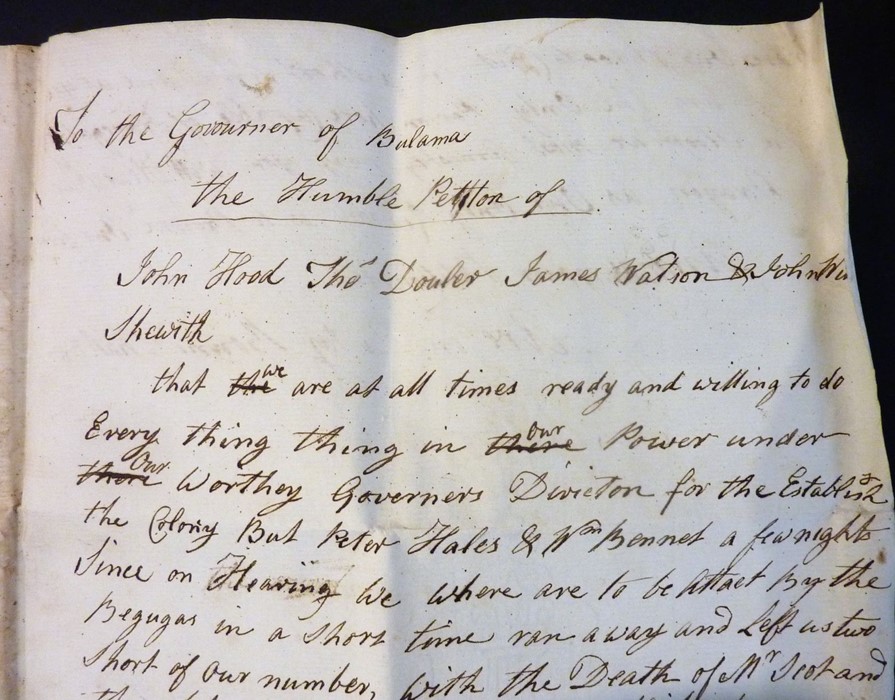 To the Govourner of Bulama
the Humble Pettion of
John Hood Thos Douler James Watson & John
Shewith
that the we are at all times ready and willing to do
Every thing thing in there our Power under
there Our Worthey Governers Divicton for the Establish
the Colony But Peter Hales & Wm Bennet a few nights
Since on Hearing We where are to be Attact By the
Begugas in a Short time ran away and Left us two
Short of our number, with the Death of Mr Scot and